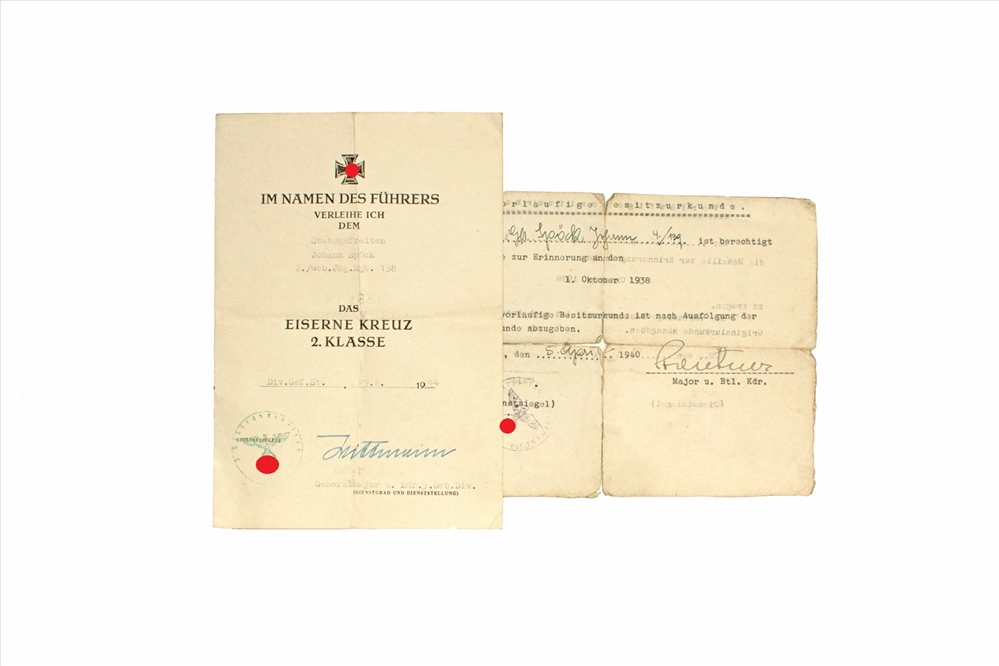 IM NAMEN DES FÜHRERS
VERLEIHE ICH
DEM
Stabsgefreiten
Johann Spöck
2./Geb.Jäg.Rgt. 138
DAS
EISERNE KREUZ
2. KLASSE
Div.Gef.St. , 1944
DIENSTSIEGEL
Wittmann
Generalmajor u. Kdr. Geb.Div.
(DIENSTGRAD UND DIENSTSTELLUNG)
orläufige Besitzurkunde.
Spöck Johann ist berechtigt
zur Erinnerung an den
1. Oktober 1938
vorläufige Besitzurkunde ist nach Ausfolgung der
unde abzugeben.
, den 5. April 1940
Major u. Btl. Kdr.
nstsiegel)